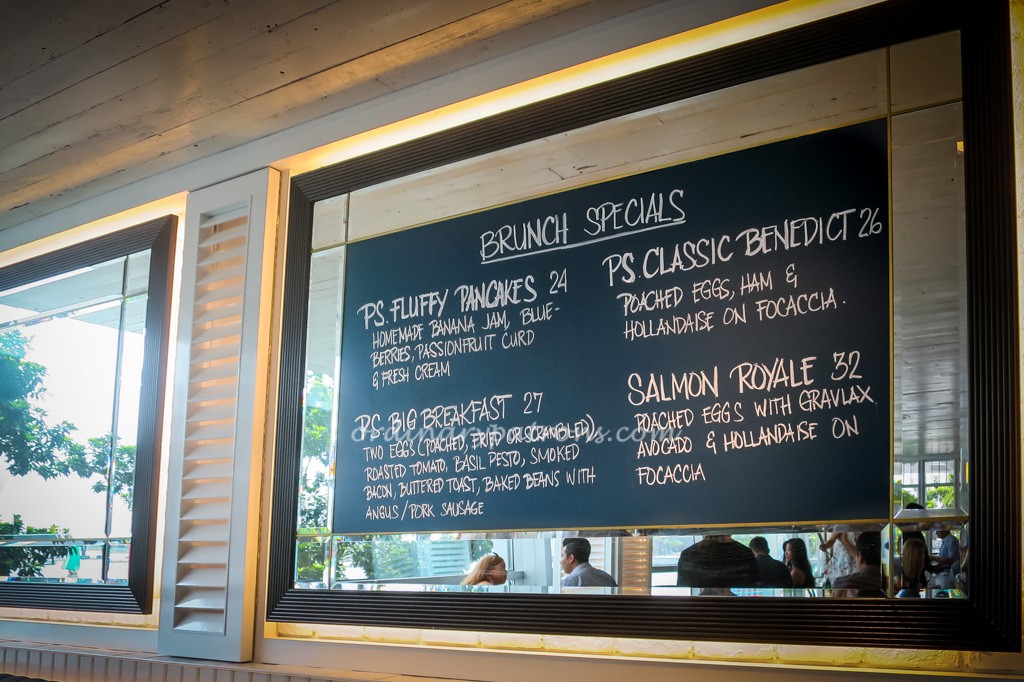 BRUNCH SPECIALS
PS. FLUFFY PANCAKES 24
HOMEMADE BANANA JAM, BLUE-
BERRIES, PASSIONFRUIT CURD
& FRESH CREAM
PS. BIG BREAKFAST 27
TWO EGGS (POACHED, FRIED OR SCRAMBLED),
ROASTED TOMATO, BASIL PESTO, SMOKED
BACON, BUTTERED TOAST, BAKED BEANS WITH
ANGUS/PORK SAUSAGE
PS. CLASSIC BENEDICT 26
POACHED EGGS, HAM &
HOLLANDAISE ON FOCACCIA.
SALMON ROYALE 32
POACHED EGGS WITH GRAVLAX,
AVOCADO & HOLLANDAISE ON
FOCACCIA